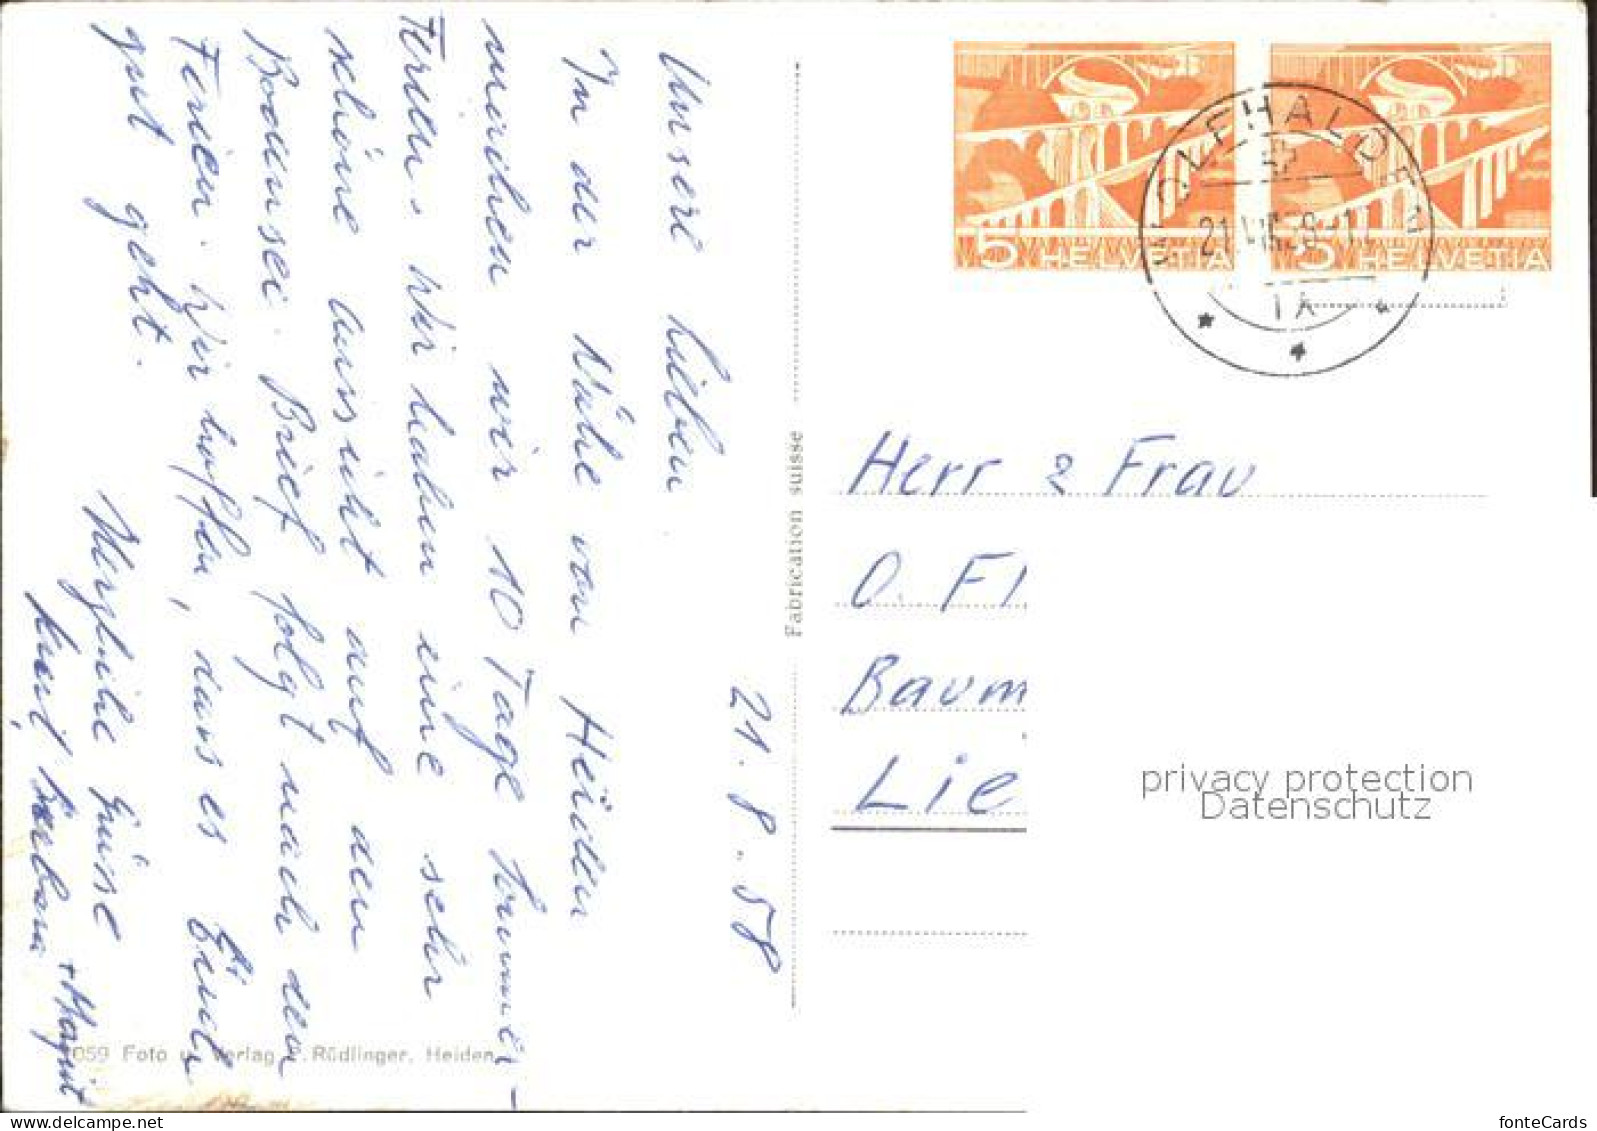 21.8.58
Unsere lieben
In der Nähe von Heiden
machen wir 10 Tage Sommer-
Ferien. Wir haben eine sehr
schöne Aussicht auf den
Bodensee. Brief folgt nach den
Ferien. Wir hoffen, dass es Euch
gut geht.
Herzliche Grüsse
Kurt, Barbara + Margrit
059 Foto u. Verlag Rüdlinger, Heiden
Fabrication suisse
5 HELVETIA
5 HELVETIA
WOLFHALDEN
21.VIII.58-17
Herr & Frau
O. Fl
Baum
Lie
privacy protection
Datenschutz
fonteCards